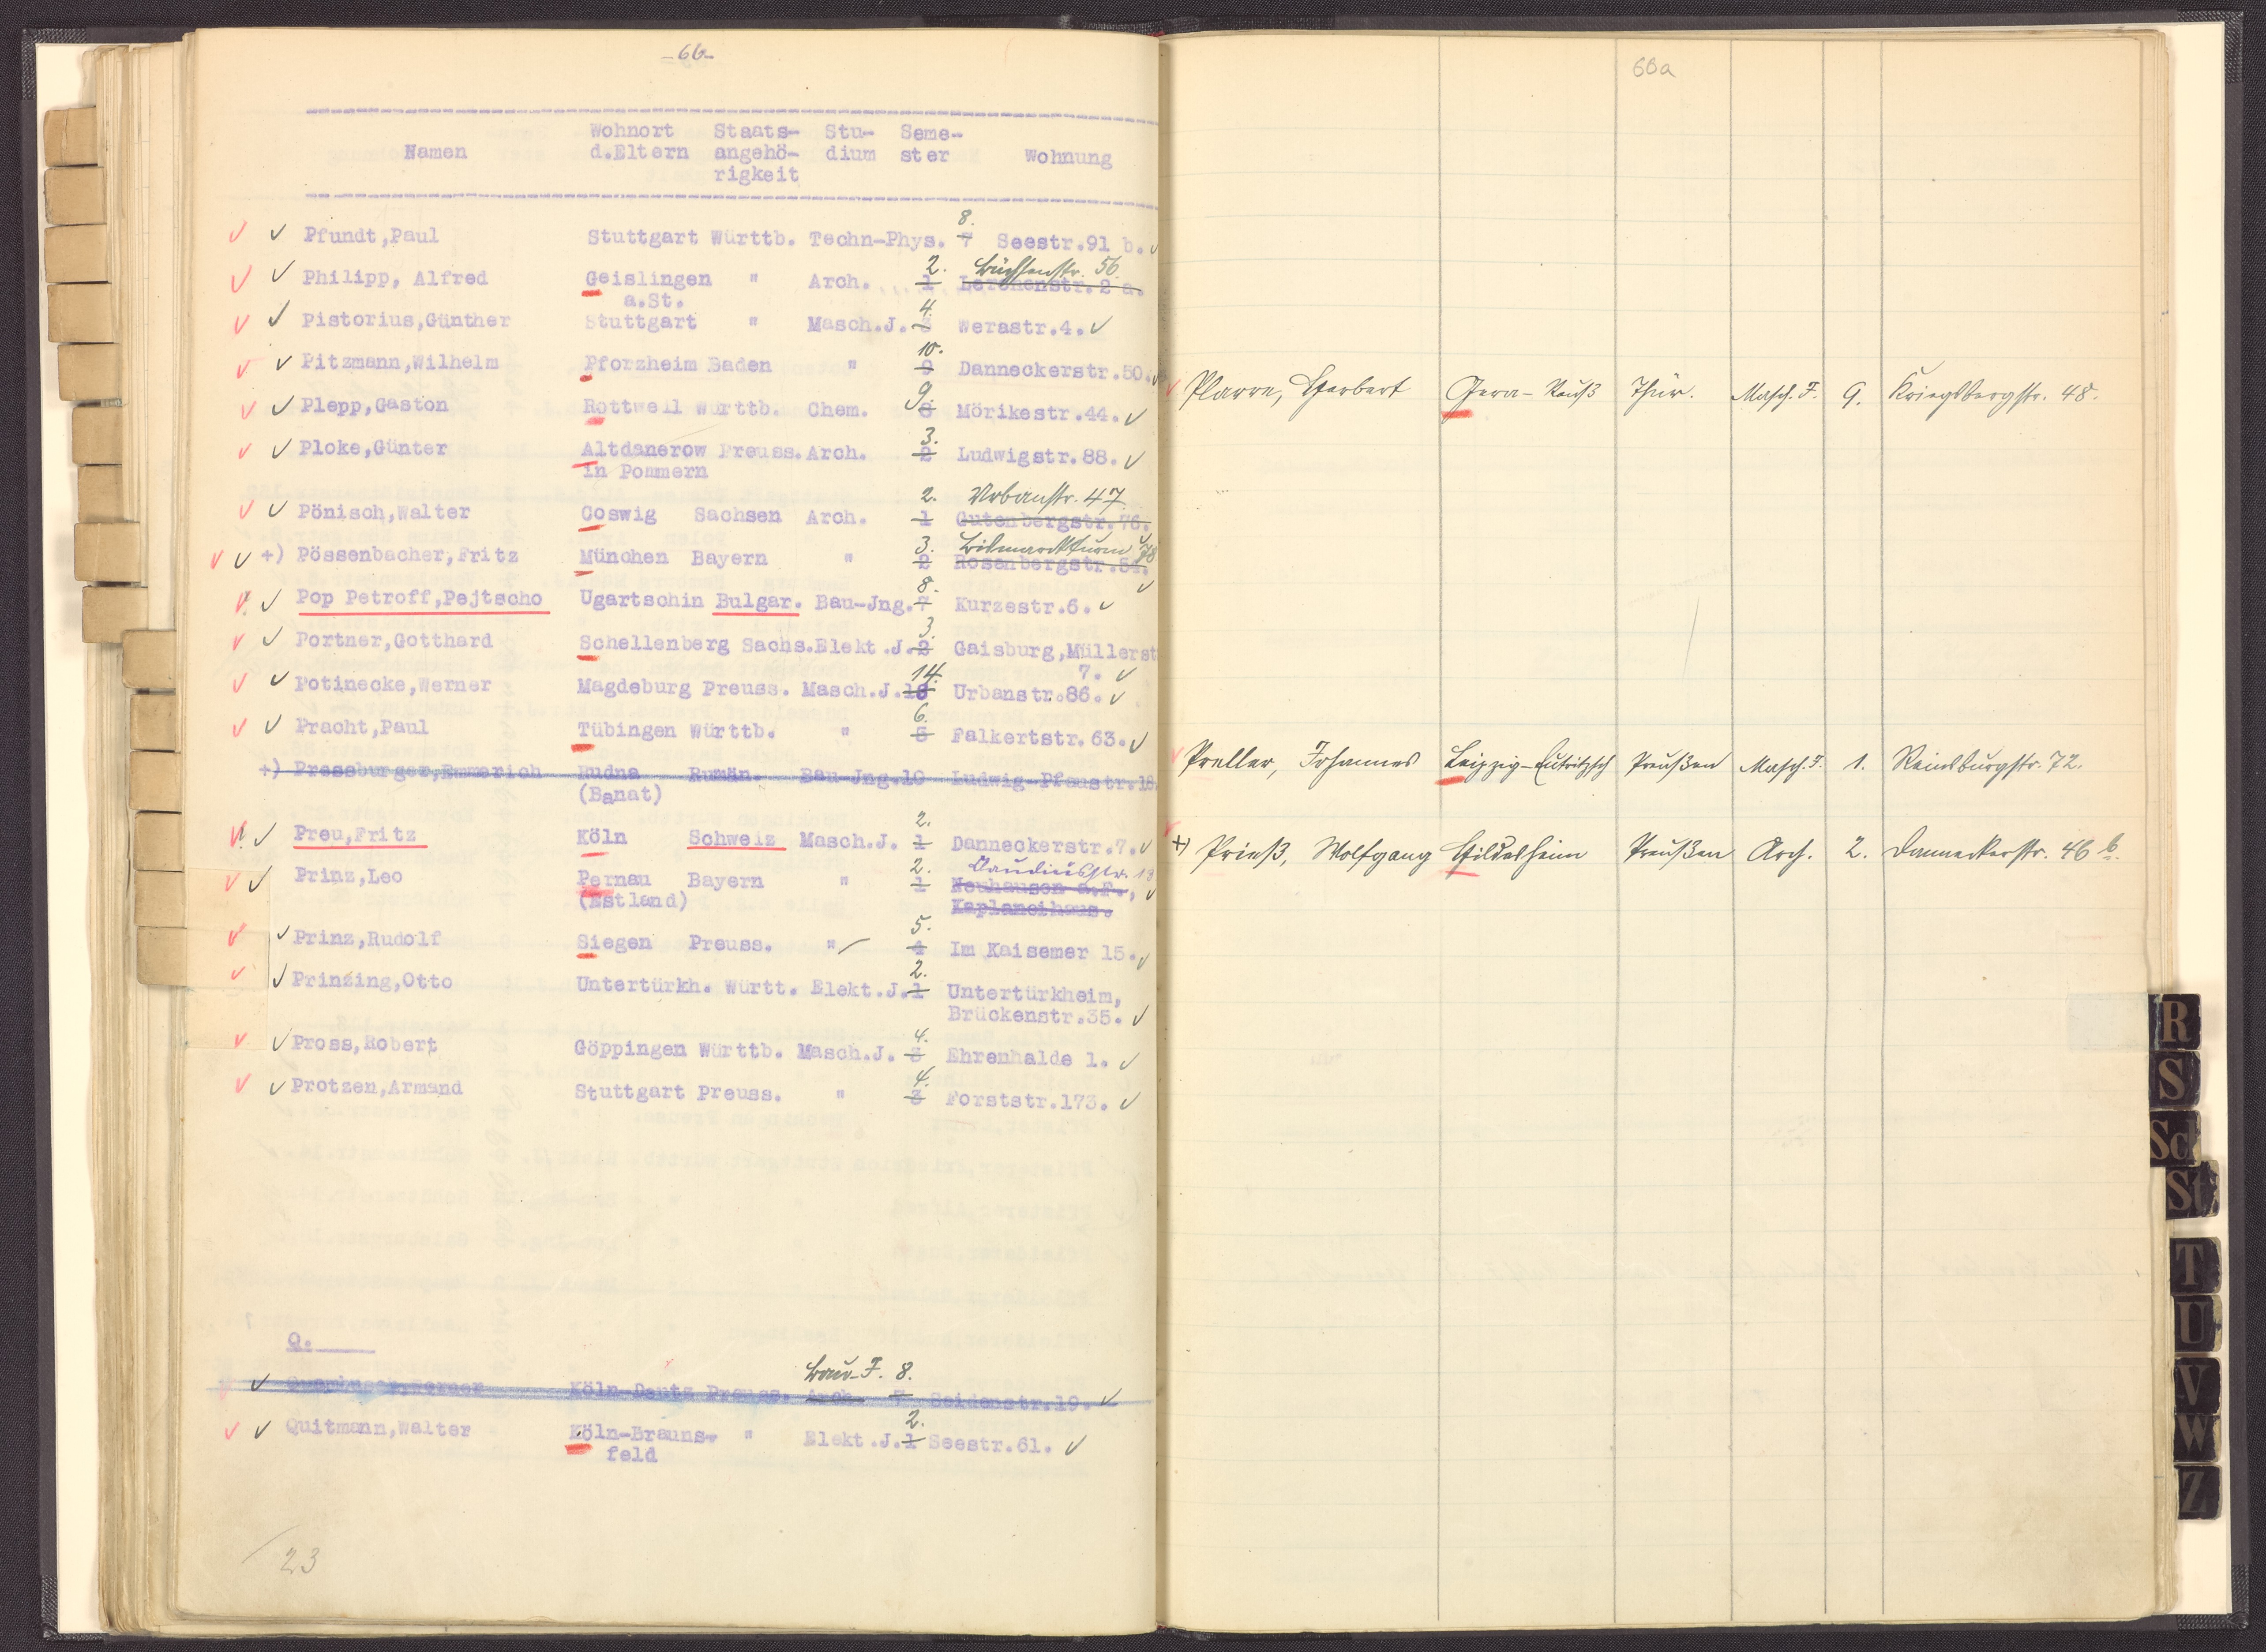 -66-
Wohnort Staats- Stu- Seme-
Namen d.Eltern angehö- dium ster Wohnung
rigkeit
8.
Pfundt,Paul Stuttgart Württb. Techn-Phys. 7 Seestr.91 b.
2. Büchsenstr. 56.
Philipp, Alfred Geislingen " Arch. 1 Lerchenstr.2 a.
a.St. 4.
Pistorius,Günther Stuttgart " Masch.J. 3 Werastr.4.
10.
Pitzmann,Wilhelm Pforzheim Baden " 9 Danneckerstr.50.
9.
Plepp,Gaston Rottweil Württb. Chem. 8 Mörikestr.44.
3.
Ploke,Günter Altdanerow Preuss.Arch. 2 Ludwigstr.88.
in Pommern
2. Urbanstr. 47
Pönisch,Walter Coswig Sachsen Arch. 1 Gutenbergstr.76.
3. Bismarckturm 78
+) Pössenbacher,Fritz München Bayern " 2 Rosenbergstr.54.
8.
Pop Petroff,Pejtscho Ugartschin Bulgar. Bau-Jng.7 Kurzestr.6.
3.
Portner,Gotthard Schellenberg Sachs.Elekt.J.2 Gaisburg,Müllerst
14. 7.
Potinecke,Werner Magdeburg Preuss. Masch.J.13 Urbanstr.86.
6.
Pracht,Paul Tübingen Württb. " 5 Falkertstr.63.
+) Pressburger,Emmerich Rudna Rumän. Bau-Jng.10 Ludwig-Pfaustr.18.
(Banat)
2.
Preu,Fritz Köln Schweiz Masch.J. 1 Danneckerstr.7.
2. Claudiusstr. 13
Prinz,Leo Pernau Bayern " 1 Neuhausen a.F.,
(Estland) Kaplaneihaus.
5.
Prinz,Rudolf Siegen Preuss. " 4 Im Kaisemer 15.
2.
Prinzing,Otto Untertürkh. Württ. Elekt.J.1 Untertürkheim,
Brückenstr.35.
4.
Pross,Robert Göppingen Württb. Masch.J. 3 Ehrenhalde 1.
4.
Protzen,Armand Stuttgart Preuss. " 3 Forststr.173.
Q.
Bau-J. 8.
Köln-Deutz Preuss. Arch. 7 Seidenstr.19.
2.
Quitmann,Walter Köln-Brauns- " Elekt.J.1 Seestr.61.
feld
23
66a
Plarre, Herbert Gera-Reuß Thür. Masch.J. 9. Kriegsbergstr. 48.
Preller, Johannes Leipzig-Eutritzsch Preußen Masch.J. 1. Reinsburgstr. 72.
+) Prieß, Wolfgang Hildesheim Preußen Arch. 2. Danneckerstr. 46 b.
R
S
Sch
St
T
U
V
W
Z